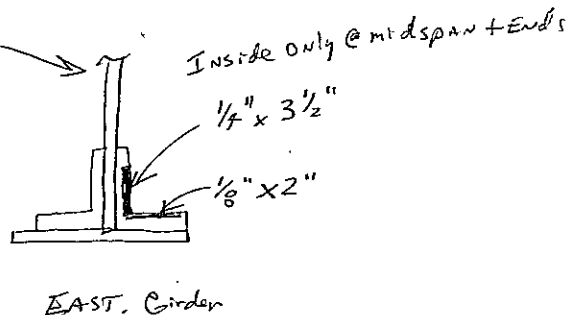 Inside only @ midspan + Ends
1/4" x 3 1/2"
1/8" x 2"
EAST. Girder